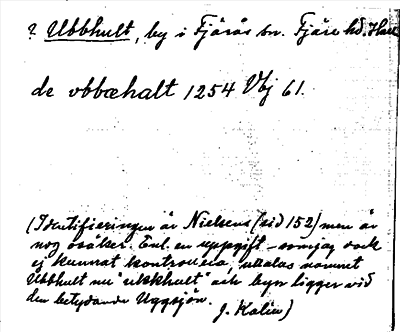 ? Ubbhult, by i Fjärås sn. Fjäre hd. Hall
de vbbæhalt 1254 Vbj 61.
(Identifieringen är Nielsens (sid 152) men är
nog osäker. Enl. en uppgift – som jag dock
ej kunnat kontrollera, uttalas namnet
Ubbhult nu "ukkhult" och byn ligger vid
den betydande Uggsjön.
J. Kalén)